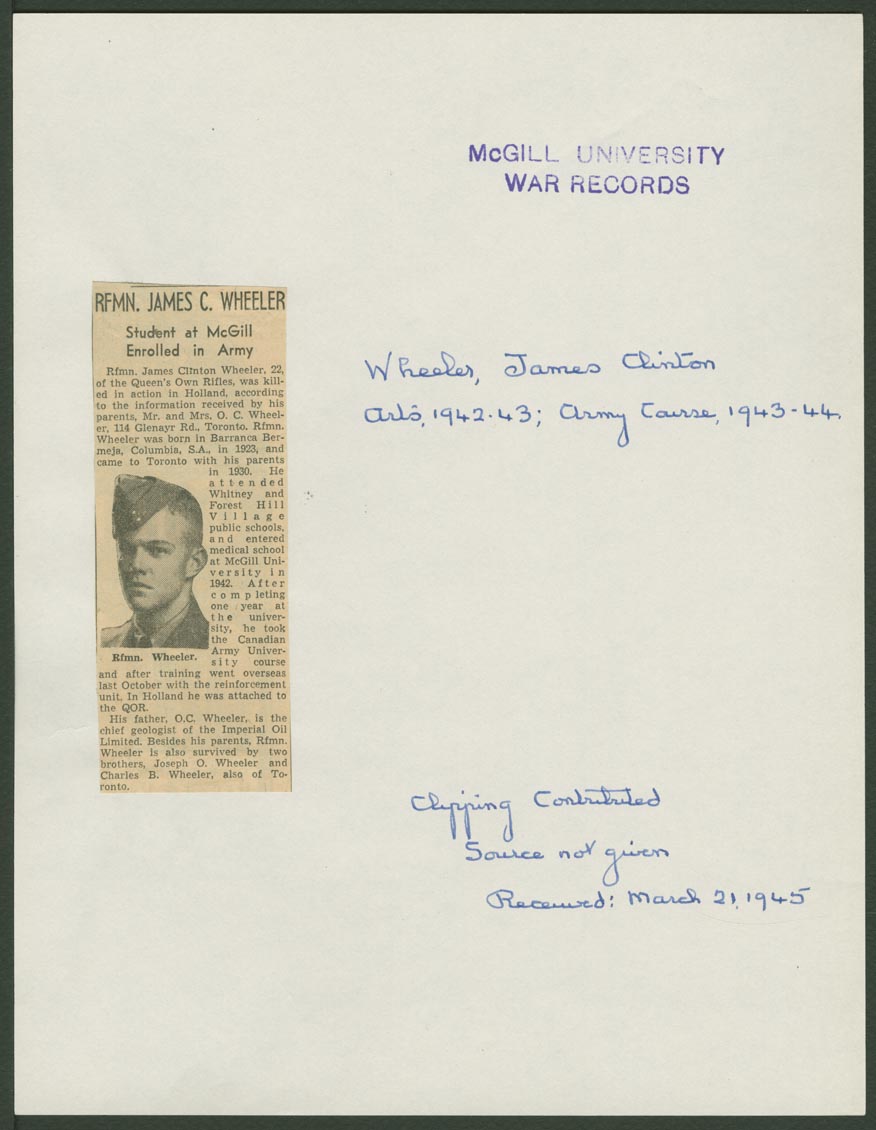 McGILL UNIVERSITY
WAR RECORDS
RFMN. JAMES C. WHEELER
Student at McGill
Enrolled in Army
Rfmn. James Clinton Wheeler, 22,
of the Queen's Own Rifles, was kill-
ed in action in Holland, according
to the information received by his
parents, Mr. and Mrs. O. C. Wheel-
er, 114 Glenayr Rd., Toronto. Rfmn.
Wheeler was born in Barranca Ber-
meja, Columbia, S.A., in 1923, and
came to Toronto with his parents
in 1930. He
attended
Whitney and
Forest Hill
Village
public schools,
and entered
medical school
at McGill Uni-
versity in
1942. After
completing
one year at
the univer-
sity, he took
the Canadian
Army Univer-
sity course
Rfmn. Wheeler.
and after training went overseas
last October with the reinforcement
unit. In Holland he was attached to
the QOR.
His father, O.C. Wheeler, is the
chief geologist of the Imperial Oil
Limited. Besides his parents, Rfmn.
Wheeler is also survived by two
brothers, Joseph O. Wheeler and
Charles B. Wheeler, also of To-
ronto.
Wheeler, James Clinton
Arts, 1942-43; Army Course, 1943-44.
Clipping Contributed
Source not given
Received: March 21, 1945